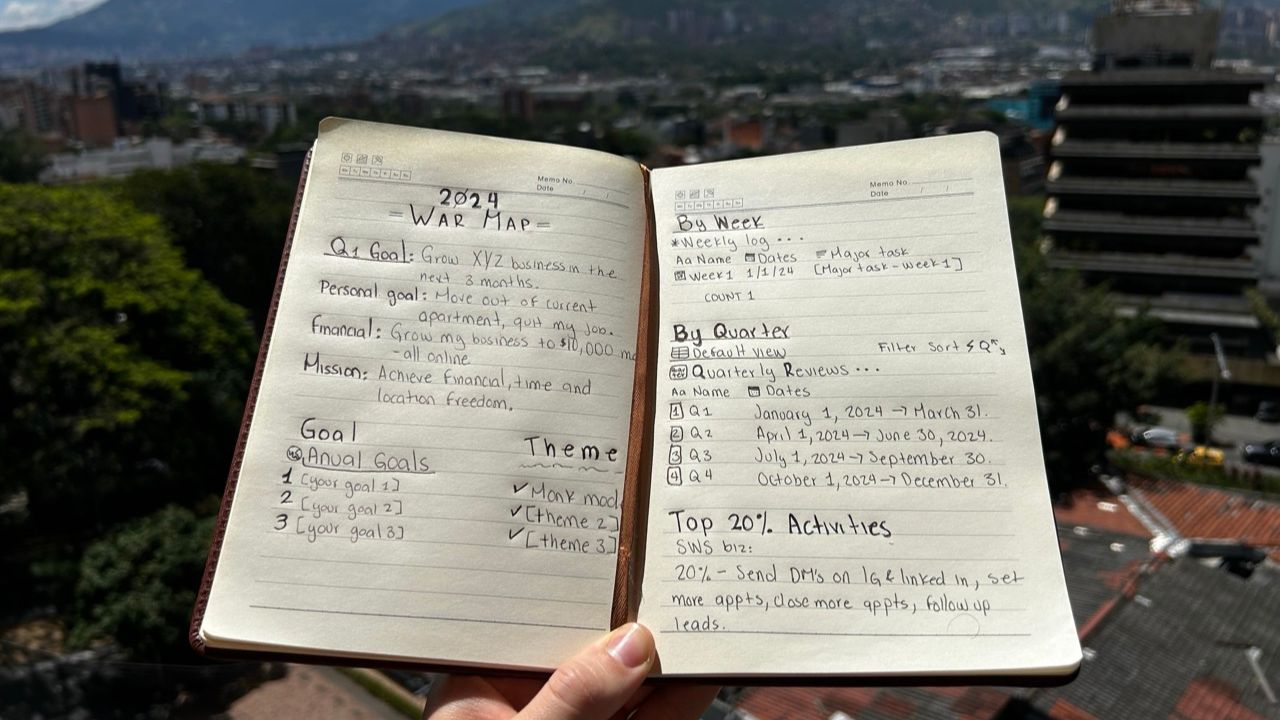 Memo No.
Date / /
2024
= WAR MAP =
Q1 Goal: Grow XYZ business in the
next 3 months.
Personal goal: Move out of current
apartment, quit my job.
Financial: Grow my business to $10,000 mo
- all online
Mission: Achieve financial, time and
location freedom.
Goal
Anual Goals
1 [your goal 1]
2 [your goal 2]
3 [your goal 3]
Theme
✓ Monk mod
✓ [theme 2]
✓ [theme 3]
Memo No.
Date / /
By Week
*Weekly log ...
Aa Name Dates Major task
Week 1 1/1/24 [Major task - week 1]
COUNT 1
By Quarter
Default view Filter Sort Q
Quarterly Reviews ...
Aa Name Dates
1 Q1 January 1, 2024 → March 31.
2 Q2 April 1, 2024 → June 30, 2024.
3 Q3 July 1, 2024 → September 30.
4 Q4 October 1, 2024 → December 31.
Top 20% Activities
SWS biz:
20% - Send DM's on IG & linked in, set
more appts, close more appts, follow up
leads.